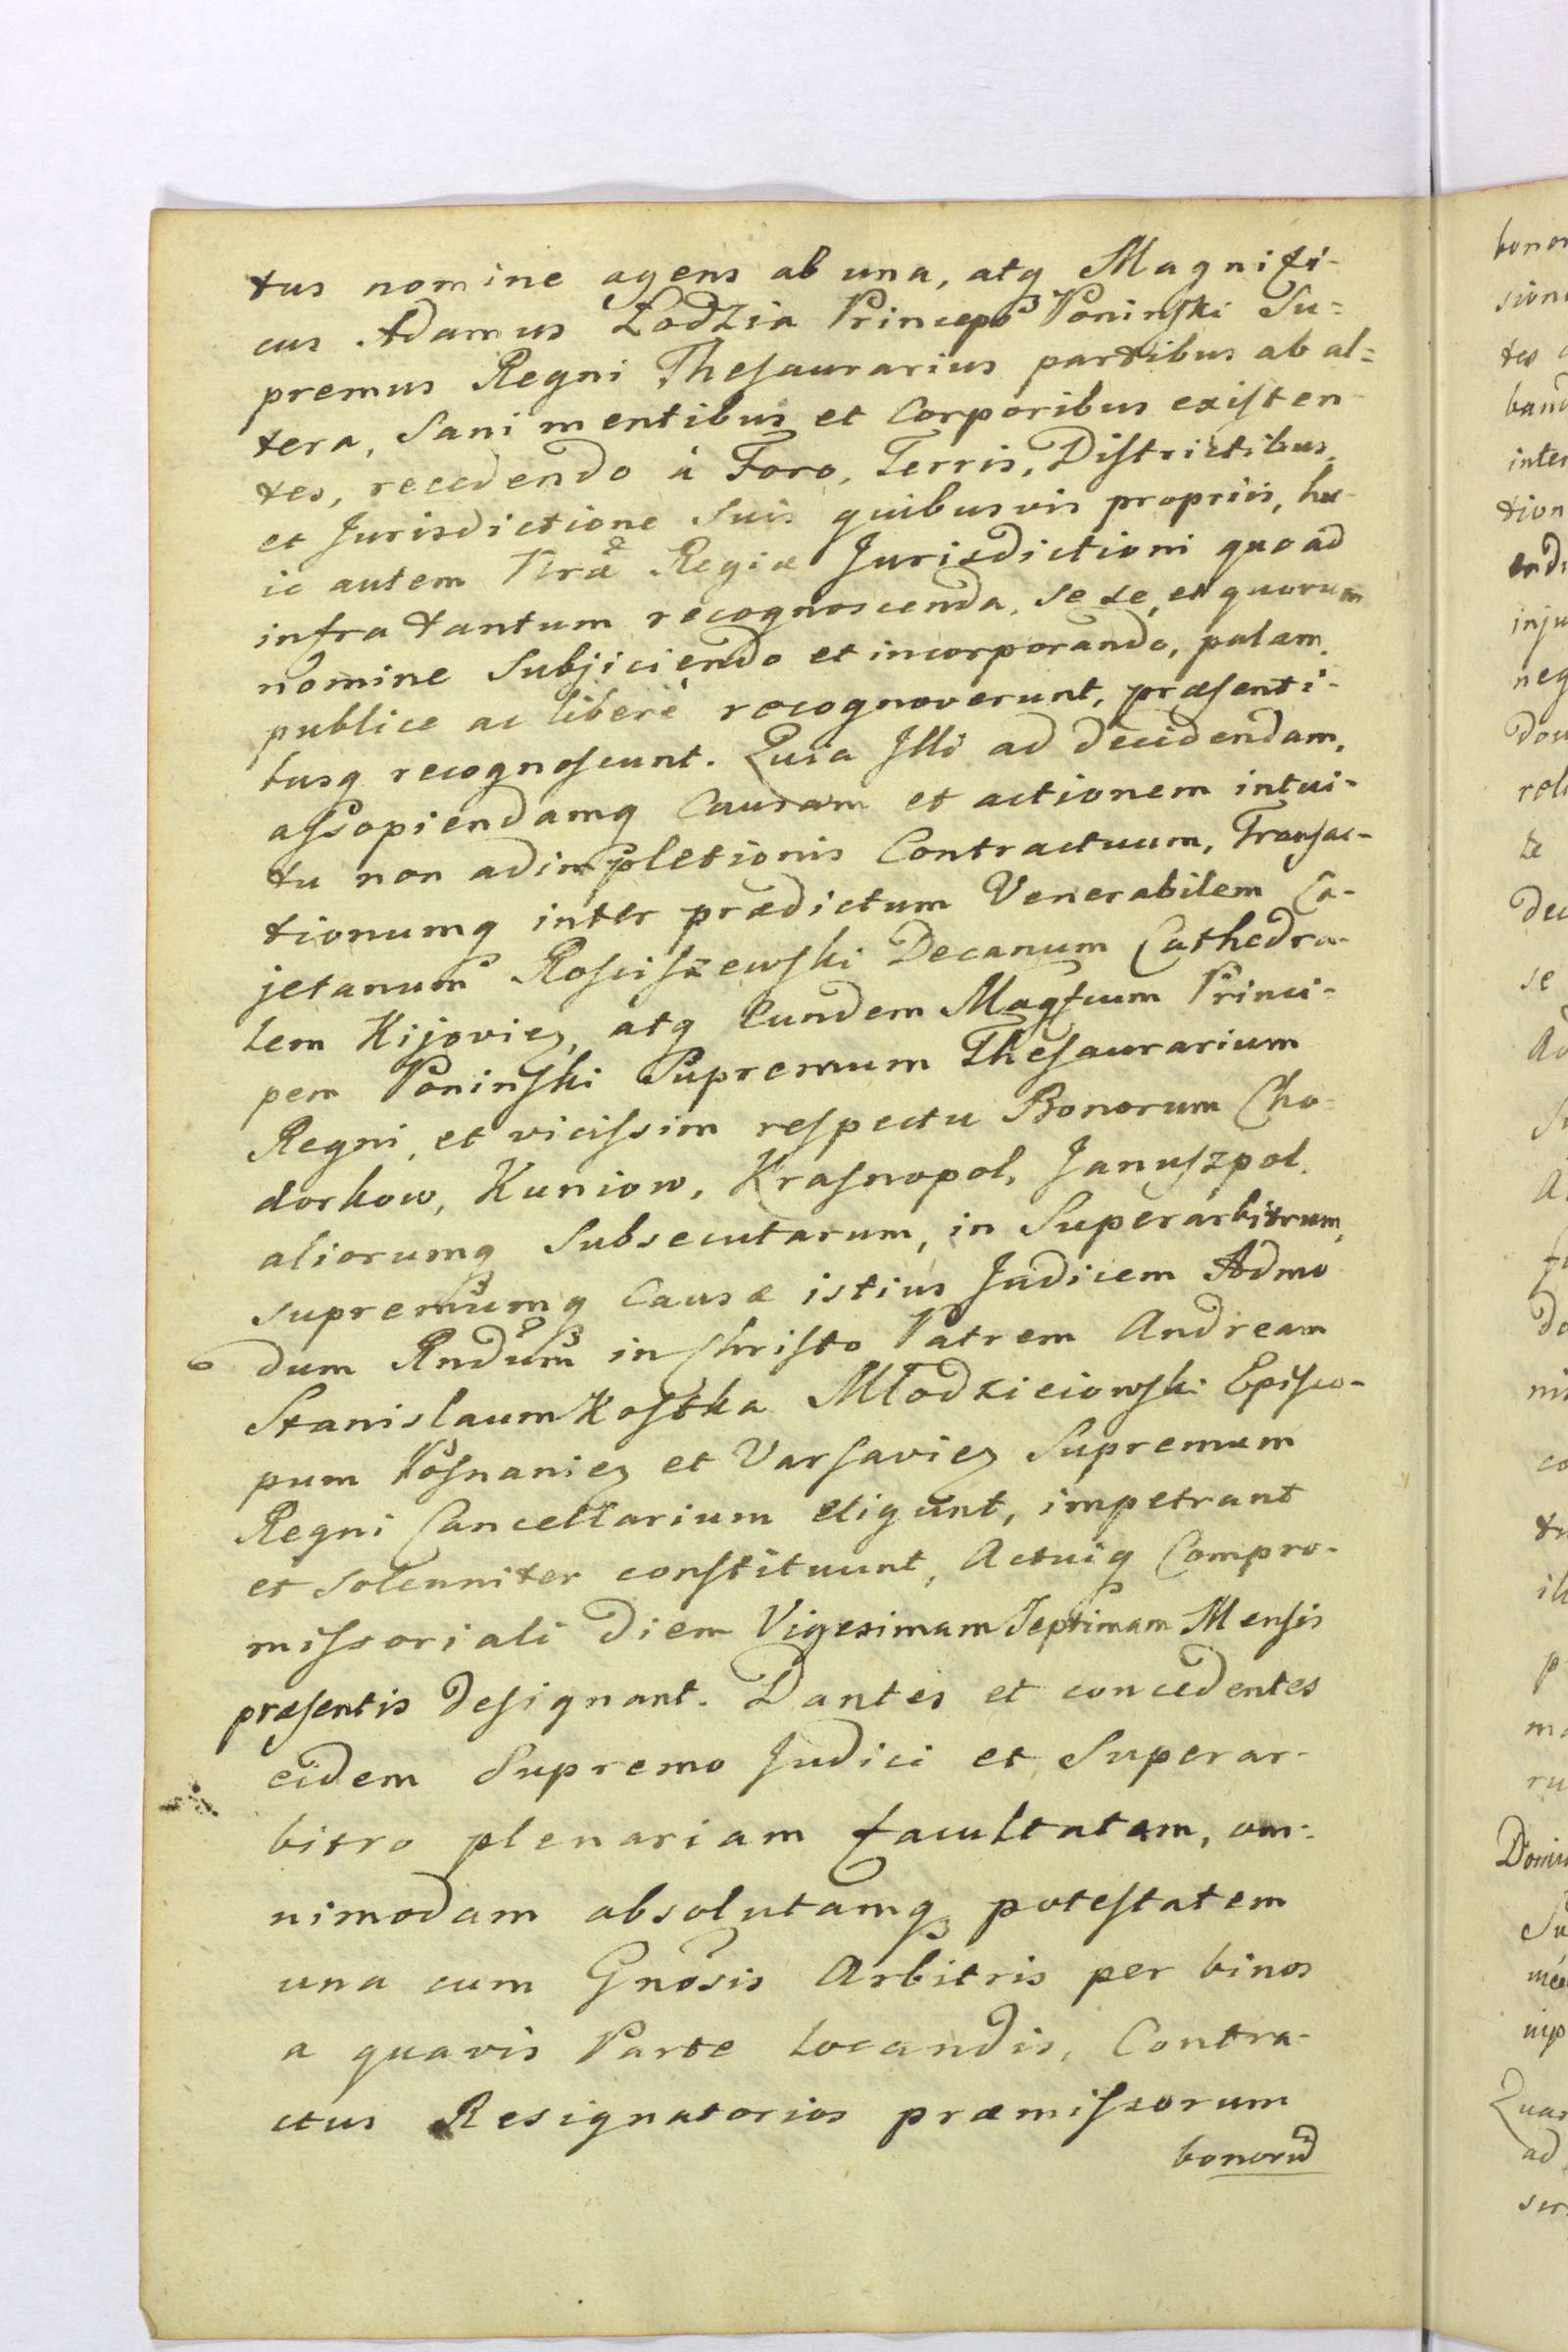 tus nomine agens ab una, atq Magnifi-
cus Adamus Łodzia Princeps Poninſki Su=
premus Regni Theſaurarius partibus ab al=
tera, Sani mentibus et Corporibus exiſten-
tes, recedendo à Foro, Terris, Diſtrictibus,
et Jurisdictione Suis quibusvis propriis, hu-
ic autem Nræ Regiæ Jurisdictioni quoad
infra tantum recognoscenda, se se, et quorum
nomine Subjiciendo et incorporando, palam,
publice ac liberè recognoverunt, præſenti-
busq recognoſcunt. Quia Illi ad decidendam,
aſsopiendamq Causam et actionem intui-
tu non adimpletionis Contractuum, Tranſac-
tionumq inter prædictum Venerabilem Ca-
jetanum Roſciſzewſki Decanum Cathedra-
lem Kijovieȝ, atq Eundem Magfcum Princi-
pem Poninſki Supremum Theſaurarium
Regni, et viciſsim reſpectu Bonorum Cho-
dorkow, Kuniow, Kraſnopol, Januſzpol,
aliorumq Subsecutarum, in Superarbitrum,
supremumq Causæ istius Judicem Admo
dum Rndum in Chriſto Patrem Andream
Stanislaum Koſtka Młodzieiowſki Epiſco-
pum Poſnanieȝ et Varſavieȝ Supremum
Regni Cancellarium eligunt, impetrant
et Solenniter conſtituunt, Actuiq Compro-
miſsoriali diem Vigesimam Septimam Menſis
præſentis deſignant. Dantes et concedentes
eidem Supremo Judici et Superar-
bitro plenariam facultatem, om-
nimodam absolutamq poteſtatem
una cum Gnosis Arbitris per binos
a quavis Parte locandis, Contra-
ctus Resignatorios præmiſsorum
bonorū
bonor
sion
tes
band
inter
tion
endi
inju
neg
dou
rel
te
dec
se
do
ni
co
il
p
ma
ru
Domin
Su
me
mp
Quar
ad
ser